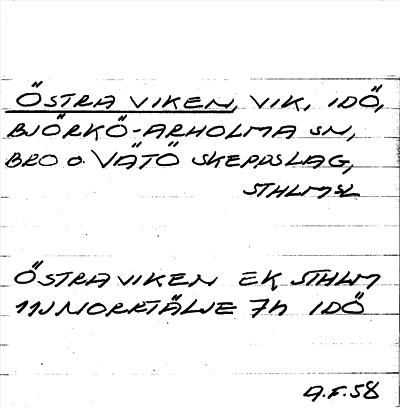 ÖSTRA VIKEN, VIK, IDÖ,
BJÖRKÖ-ARHOLMA SN,
BRO o. VÄTÖ SKEPPSLAG,
STHLMSL
ÖSTRA VIKEN EK STHLM
11J NORRTÄLJE 7h IDÖ
A.F.58